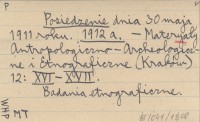 P V
Posiedzenie dnia 30 maja
1911 roku. 1912 a. - Materjały
Antropologiczno-Archeologicz-
ne i Etnograficzne (Kraków)
12: XVI-XVII.
Badania etnograficzne.
WHP
MT